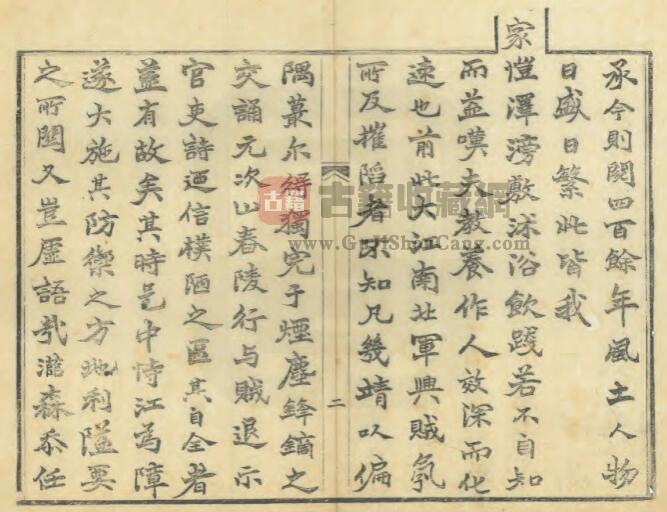 承今則閱四百餘年風土人物
日盛日繁此皆我
家愷澤滂敷沭浴飲踐若不自知
而益嘆夫教養作人效深而化
速也前此大江南北軍興賊氛
所及摧陷者不知凡幾靖以偏
隅蕞尔得獨完于煙塵鋒鏑之
交誦元次山舂陵行与賊退示
官吏詩迺信樸陋之區其自全者
益有故矣其時邑中恃江為障
遂大施其防禦之方地利隘要
之所關又豈虛語哉瀧森忝任
二
古籍 古籍收藏網
www.GujiShouCang.com